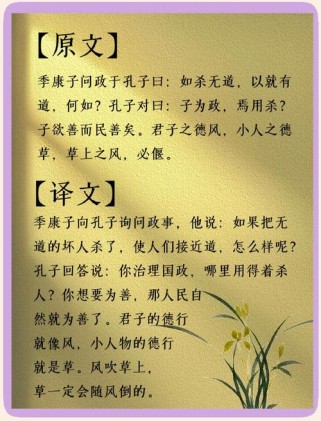 【原文】
季康子问政于孔子曰：如杀无道，以就有
道，何如？孔子对曰：子为政，焉用杀？
子欲善而民善矣。君子之德风，小人之德
草，草上之风，必偃。
【译文】
季康子向孔子询问政事，他说：如果把无
道的坏人杀了，使人们接近道，怎么样呢？
孔子回答说：你治理国政，哪里用得着杀
人？你想要为善，那人民自
然就为善了。君子的德行
就像风，小人物的德行
就是草。风吹草上，
草一定会随风倒的。